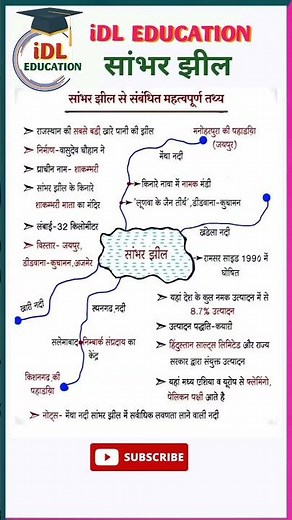 iDL
EDUCATION
iDL EDUCATION
सांभर झील
सांभर झील से संबंधित महत्वपूर्ण तथ्य
राजस्थान की सबसे बड़ी खारे पानी की झील
मनोहरपुरा की पहाडिय़ा
(जयपुर)
निर्माण-वासुदेव चौहान ने
मेंथा नदी
प्राचीन नाम- शाकम्भरी
किनारे नावा में नामक मंडी
सांभर झील के किनारे
शाकम्भरी माता का मंदिर
'लूणवा के जैन तीर्थ',डीडवाना-कुचामन
लंबाई-32 किलोमीटर
खंडेला नदी
विस्तार- जयपुर,
डीडवाना-कुचामन,अजमेर
सांभर झील
रामसर साइड 1990 में
घोषित
खारी नदी
रूपनगढ़ नदी
यहां देश के कुल नमक उत्पादन में से
8.7% उत्पादन
सलेमाबाद
निम्बार्क संप्रदाय का
केंद्र
उत्पादन पद्धति-क्यारी
हिंदुस्तान साल्ट्स लिमिटेड और राज्य
सरकार द्वारा संयुक्त उत्पादन
किशनगढ़ की
पहाडिय़ा
यहां मध्य एशिया व यूरोप से फ्लेमिंगो,
पेलिकन पक्षी आते है
नोट्स- मेंथा नदी सांभर झील में सर्वाधिक लवणता लाने वाली नदी
SUBSCRIBE